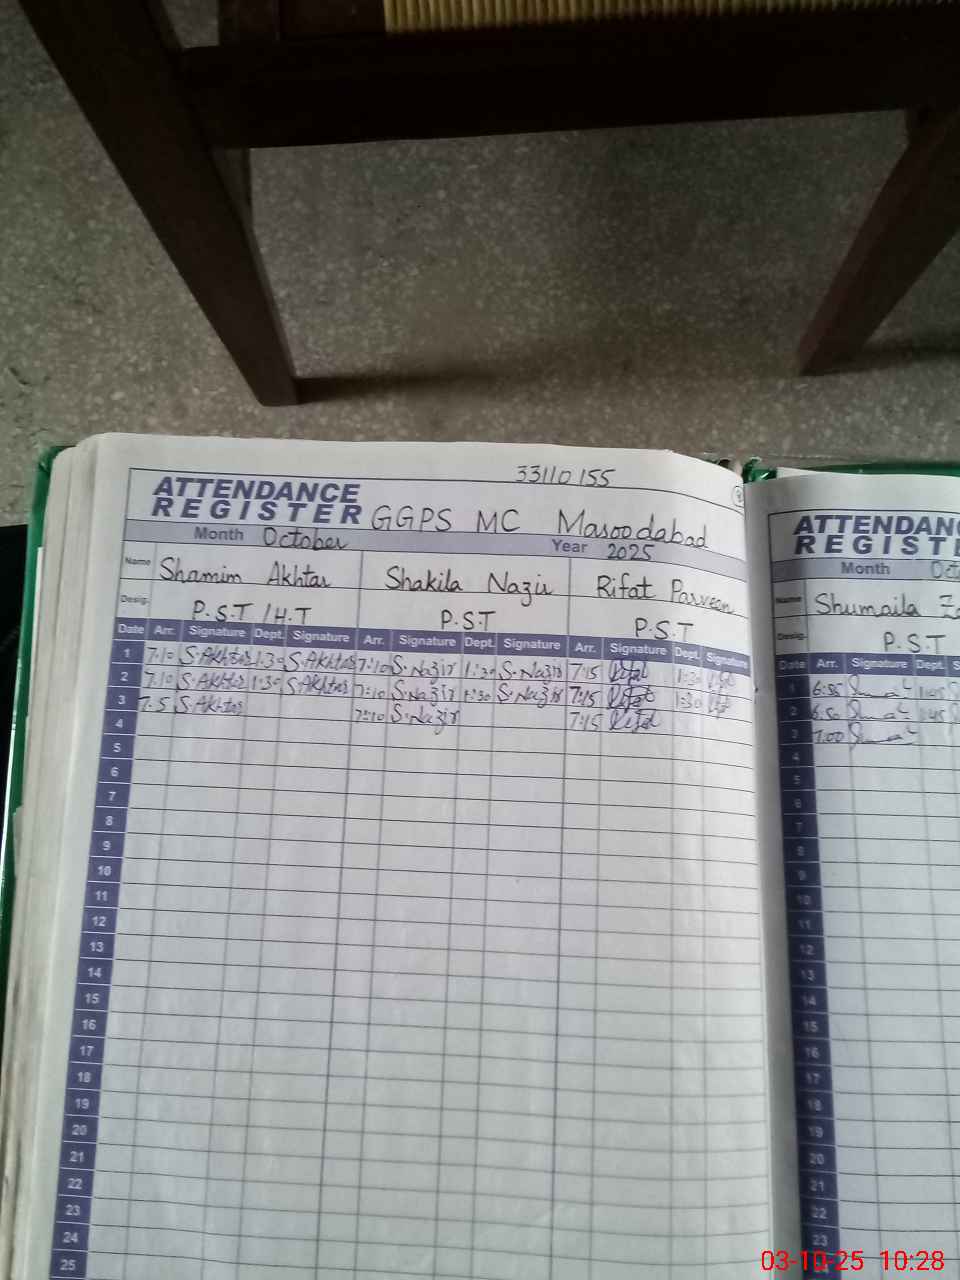 33110155
ATTENDANCE
REGISTER GGPS MC Masoodabad
Month October Year 2025
Name Shamim Akhtar Shakila Nazir Rifat Parveen
Desig. P.S.T / H.T P.S.T P.S.T
Date Arr. Signature Dept. Signature Arr. Signature Dept. Signature Arr. Signature Dept. Signature
1 7:10 S.Akhtar 1:30 S.Akhtar 7:10 S.Nazir 1:30 S.Nazir 7:15 Rifat 1:30
2 7:10 S.Akhtar 1:30 S.Akhtar 7:10 S.Nazir 1:30 S.Nazir 7:15 Rifat 1:30
3 7:5 S.Akhtar 7:10 S.Nazir 7:15 Rifat
4
5
6
7
8
9
10
11
12
13
14
15
16
17
18
19
20
21
22
23
24
25
ATTENDAN
REGISTE
Month Oct
Name Shumaila
Desig. P.S.T
Date Arr. Signature Dept. S
1 6:55 1:45
2 6:50 1:45
3 7:00
4
5
6
7
8
9
10
11
12
13
14
15
16
17
18
19
20
21
22
23
03-10-25 10:28